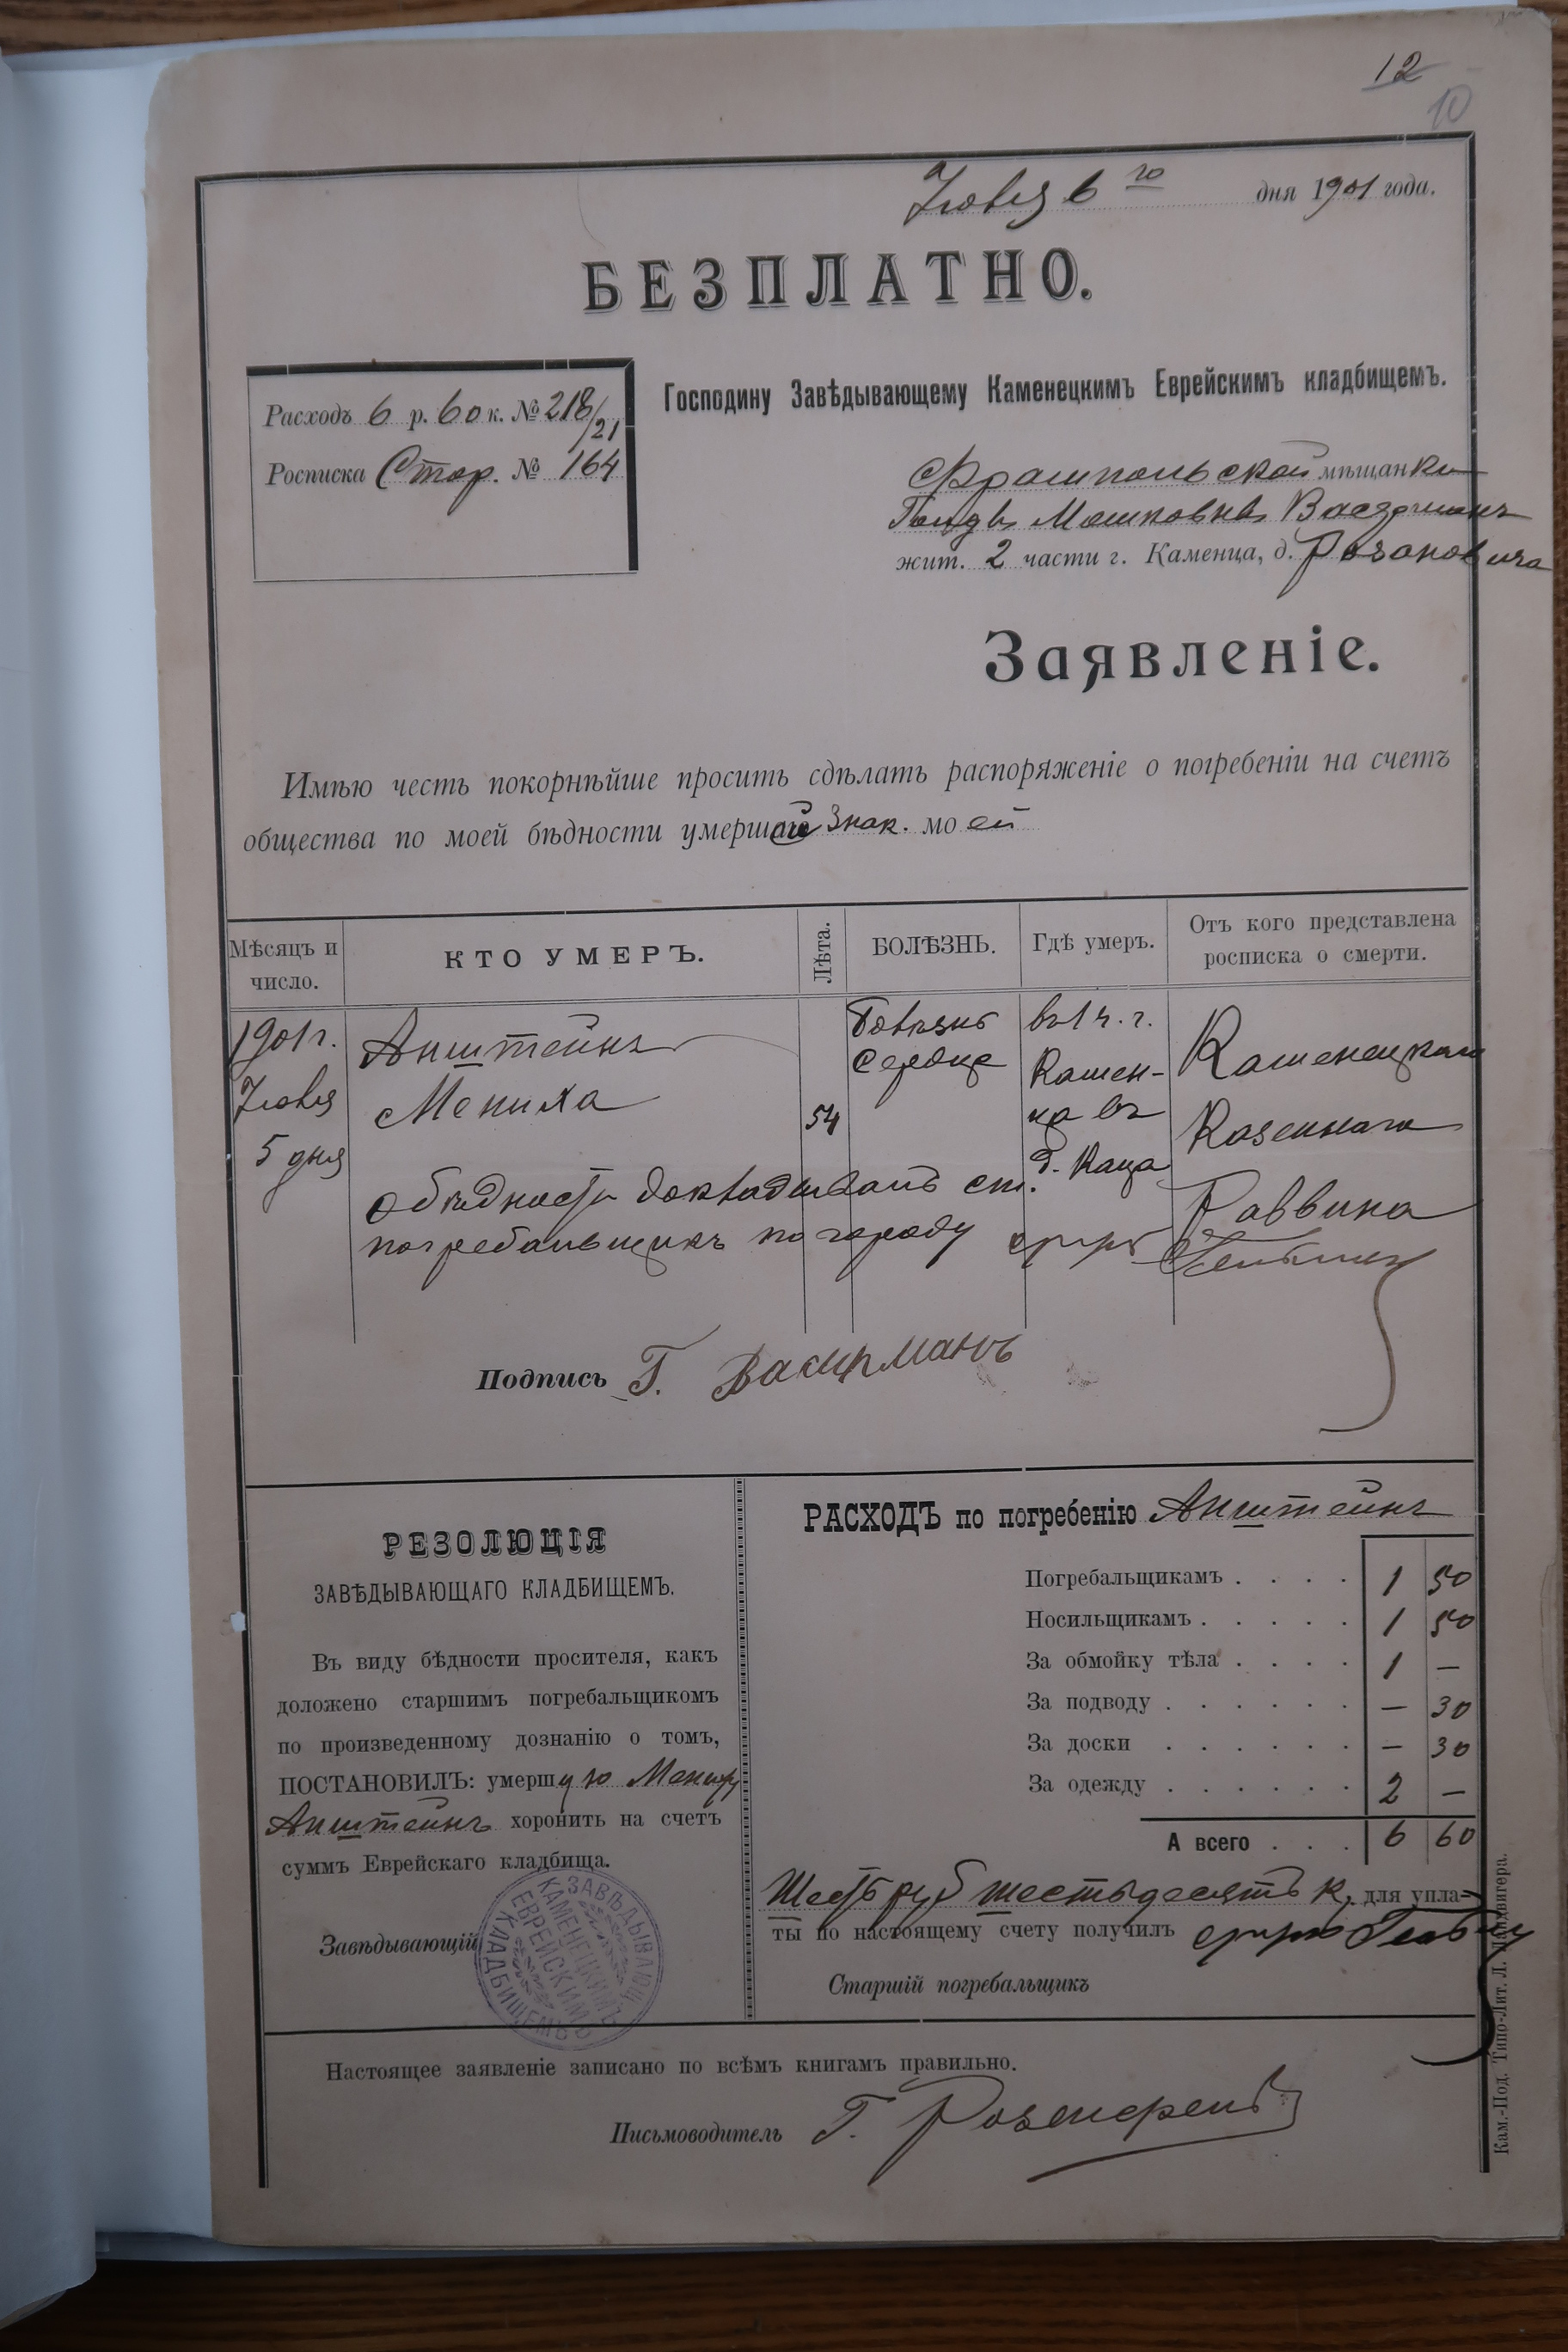 12
10
Іюля 6 го дня 1901 года.
БЕЗПЛАТНО.
Расходъ 6 р. 60 к. № 218/21
Росписка Стор. № 164
Господину Завѣдывающему Каменецкимъ Еврейскимъ кладбищемъ.
Фрампольской мѣщанки
Гольды Мошковны Васерманъ
жит. 2 части г. Каменца, д. Розановича
Заявленіе.
Имѣю честь покорнѣйше просить сдѣлать распоряженіе о погребеніи на счетъ
общества по моей бѣдности умершей знак. моей
Мѣсяцъ и число.
КТО УМЕРЪ.
Лѣта.
БОЛѢЗНЬ.
Гдѣ умеръ.
Отъ кого представлена росписка о смерти.
1901 г.
Іюля
5 дня
Анштейнъ
Мениха
54
Болѣзнь
Сердца
въ 1 ч. г.
Камен-
ца въ
д. Каца
Каменецкаго
Казеннаго
Раввина
О бѣдности докладывалъ ст.
погребальщикъ по городу
Подпись Г. Васирманъ
РЕЗОЛЮЦІЯ
ЗАВѢДЫВАЮЩАГО КЛАДБИЩЕМЪ.
Въ виду бѣдности просителя, какъ
доложено старшимъ погребальщикомъ
по произведенному дознанію о томъ,
ПОСТАНОВИЛЪ: умершую Мениху
Анштейнъ хоронить на счетъ
суммъ Еврейскаго кладбища.
Завѣдывающій
ЗАВѢДЫВАЮЩ.
КАМЕНЕЦКИМЪ
ЕВРЕЙСКИМЪ
КЛАДБИЩЕМЪ
РАСХОДЪ по погребенію Анштейнъ
Погребальщикамъ . . . . 1 50
Носильщикамъ . . . . . 1 50
За обмойку тѣла . . . . 1 —
За подводу . . . . . . — 30
За доски . . . . . . — 30
За одежду . . . . . . 2 —
А всего . . . 6 60
Шесть руб шестьдесятъ к. для упла-
ты по настоящему счету получилъ
Старшій погребальщикъ
Настоящее заявленіе записано по всѣмъ книгамъ правильно.
Письмоводитель Г. Розенфельд
Кам.-Под. Типо-Лит. Л. Ландвигера.